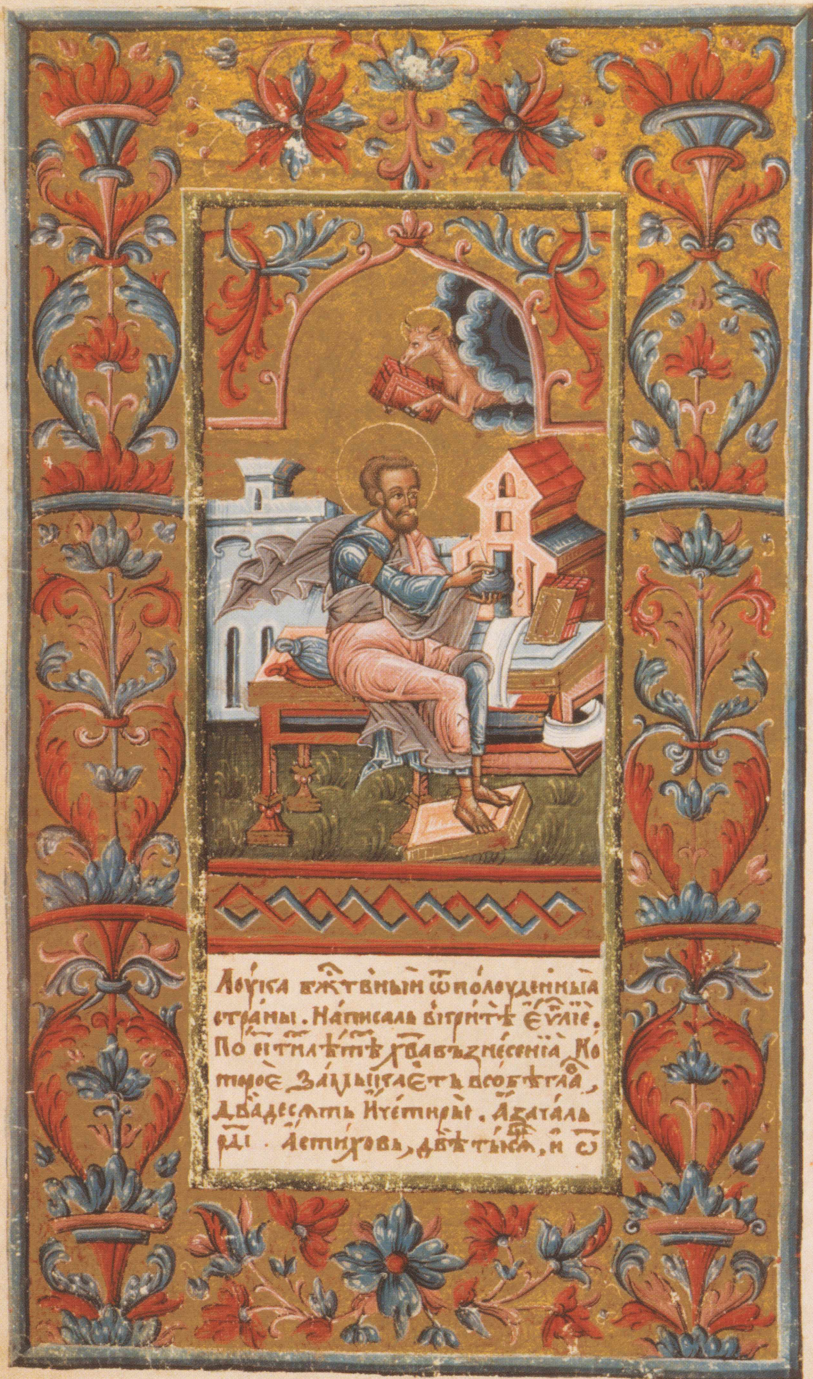 Лоука бжⷭ҇твный ѿ полоуденныꙗ
страны. Написалъ в гри́тѣ еѵⷢ҇лїе.
По еі ти лѣтⷯѣ хв҃а възнесенїа, Ко
торое Замыкаеть в собѣ глⷡ҇а,
двадесять и четире. А зачалъ
рді. А стиховъ, двѣ тысѧ, и ѡ